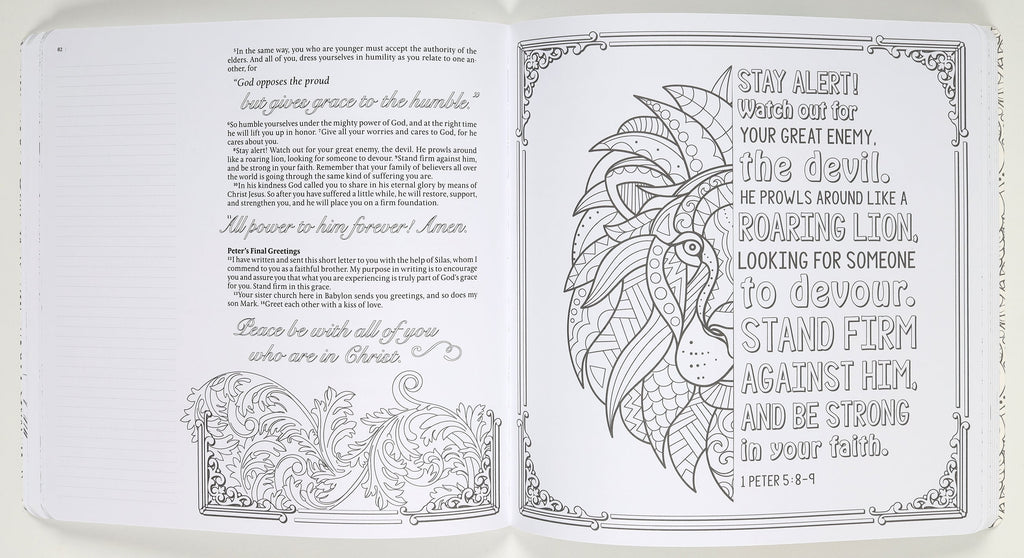 82
⁵In the same way, you who are younger must accept the authority of the
elders. And all of you, dress yourselves in humility as you relate to one an-
other, for
“God opposes the proud
but gives grace to the humble.”
⁶So humble yourselves under the mighty power of God, and at the right time
he will lift you up in honor. ⁷Give all your worries and cares to God, for he
cares about you.
⁸Stay alert! Watch out for your great enemy, the devil. He prowls around
like a roaring lion, looking for someone to devour. ⁹Stand firm against him,
and be strong in your faith. Remember that your family of believers all over
the world is going through the same kind of suffering you are.
¹⁰In his kindness God called you to share in his eternal glory by means of
Christ Jesus. So after you have suffered a little while, he will restore, support,
and strengthen you, and he will place you on a firm foundation.
¹¹All power to him forever! Amen.
Peter's Final Greetings
¹²I have written and sent this short letter to you with the help of Silas, whom I
commend to you as a faithful brother. My purpose in writing is to encourage
you and assure you that what you are experiencing is truly part of God's grace
for you. Stand firm in this grace.
¹³Your sister church here in Babylon sends you greetings, and so does my
son Mark. ¹⁴Greet each other with a kiss of love.
Peace be with all of you
who are in Christ.
STAY ALERT!
Watch out for
YOUR GREAT ENEMY,
the devil.
HE PROWLS AROUND LIKE A
ROARING LION,
LOOKING FOR SOMEONE
to devour.
STAND FIRM
AGAINST HIM,
AND BE STRONG
in your faith.
1 PETER 5:8–9